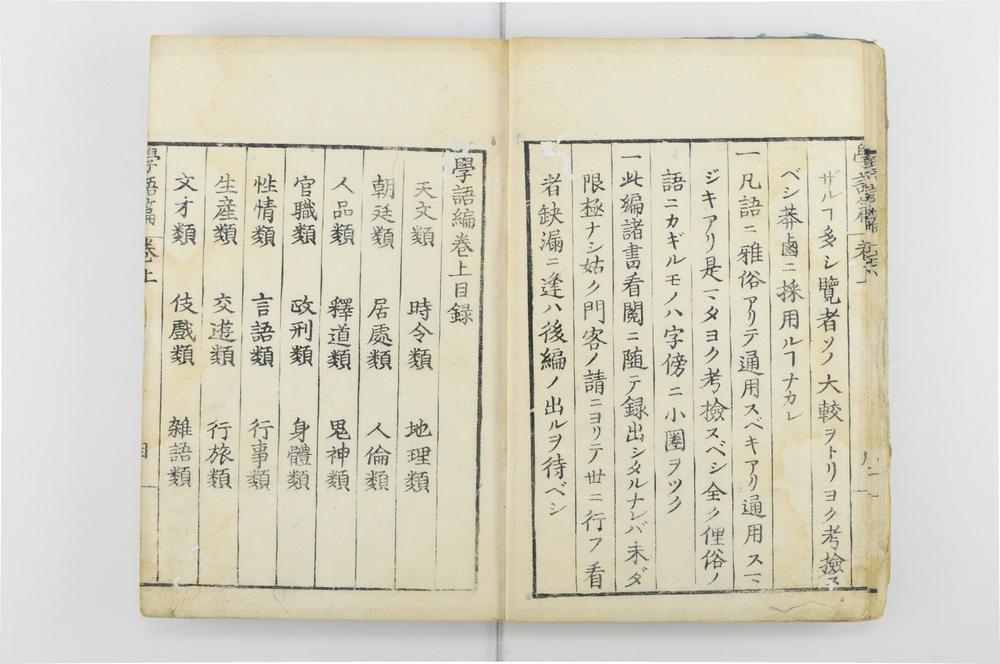 ザルヿ多シ覽者ソノ大較ヲトリヨク考撿ス
ベシ莽鹵ニ採用ルヿナカレ
一凡語ニ雅俗アリテ通用スベキアリ通用スマ
ジキアリ是マタヨク考撿スベシ全ク俚俗ノ
語ニカギルモノハ字傍ニ小圏ヲツク
一此編諸書看閲ニ随テ録出シタルナレバ未ダ
限極ナシ姑ク門客ノ請ニヨリテ世ニ行フ看
者缺漏ニ逢ハ後編ノ出ルヲ待ベシ
學語編巻上目録
天文類 時令類 地理類
朝廷類 居處類 人倫類
人品類 釋道類 鬼神類
官職類 政刑類 身體類
性情類 言語類 行事類
生産類 交遊類 行旅類
文才類 伎戲類 雑語類
學語編 巻上 目一